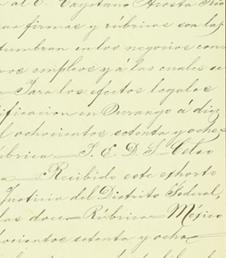 al C. Cayetano Acosta
as firmas y rúbricas son las
tumbran en los negocios con
vos empleos y a las cuales se
Para los efectos legales
ificacion en Durango á diez
l ochocientos setenta y ocho
úbrica — J. E. D. S.
a — Recibido este exhorto
Justicia del Distrito Federal,
las doce — Rúbrica — México
hocientos setenta y ocho